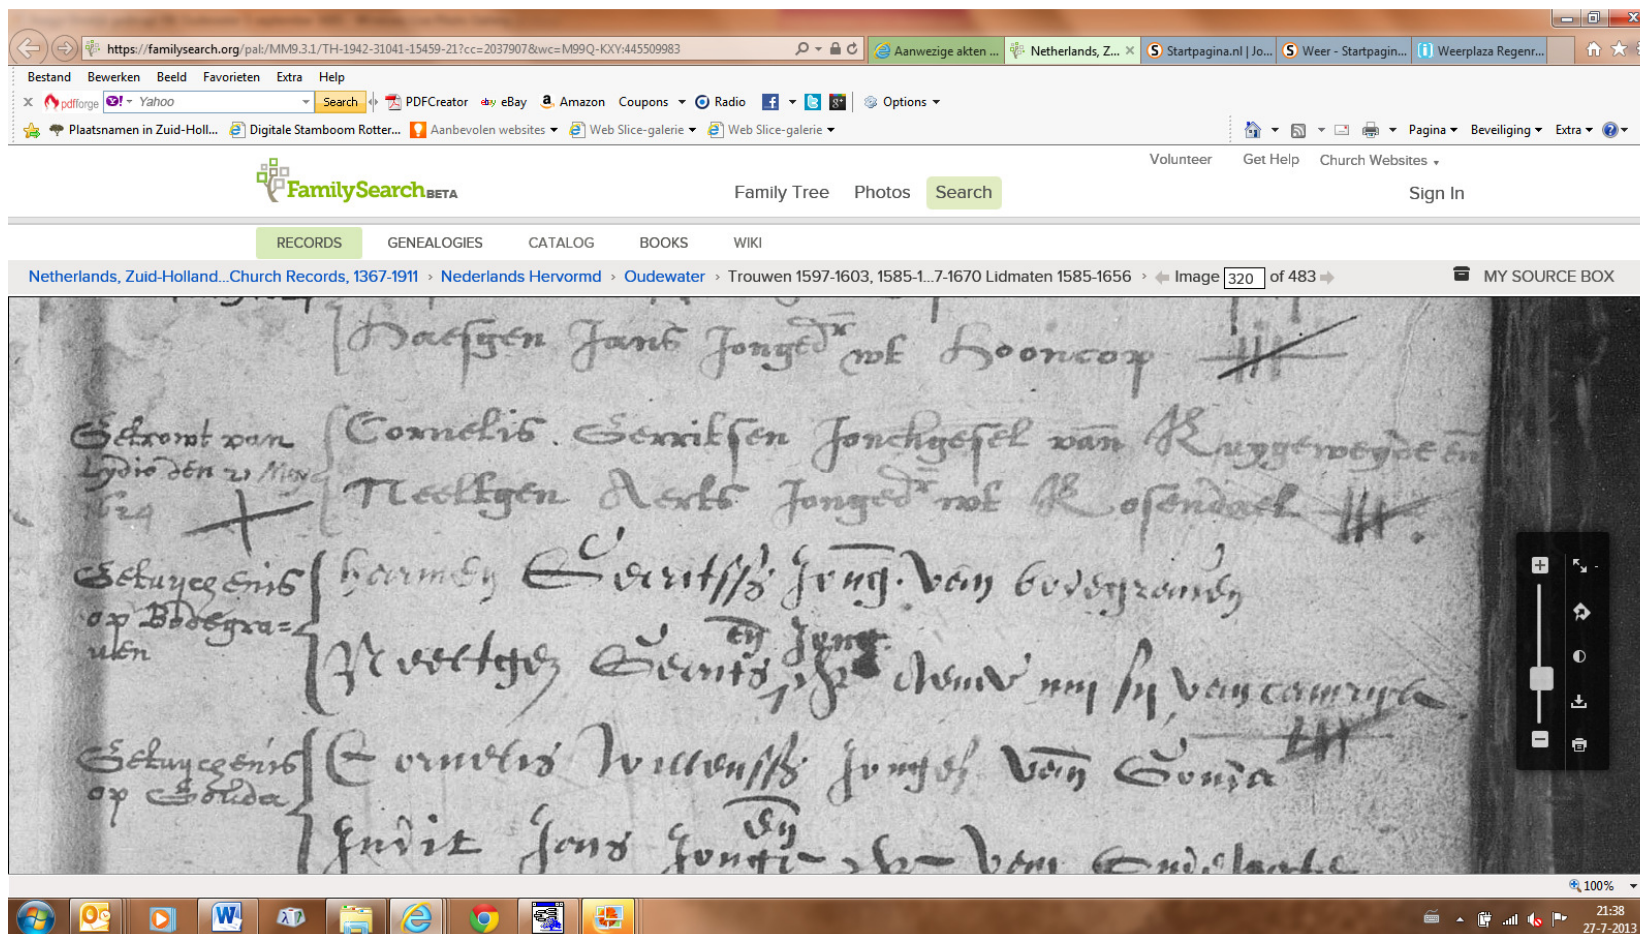 https://familysearch.org/pal:/MM9.3.1/TH-1942-31041-15459-21?cc=2037907&wc=M99Q-KXY:445509983
Aanwezige akten ... Netherlands, Z... Startpagina.nl | Jo... Weer - Startpagin... Weerplaza Regenr...
Bestand Bewerken Beeld Favorieten Extra Help
pdfforge Yahoo Search PDFCreator ebY eBay Amazon Coupons Radio Options
Plaatsnamen in Zuid-Holl... Digitale Stamboom Rotter... Aanbevolen websites Web Slice-galerie Web Slice-galerie Pagina Beveiliging Extra
Volunteer Get Help Church Websites
FamilySearch BETA Family Tree Photos Search Sign In
RECORDS GENEALOGIES CATALOG BOOKS WIKI
Netherlands, Zuid-Holland...Church Records, 1367-1911 › Nederlands Hervormd › Oudewater › Trouwen 1597-1603, 1585-1...7-1670 Lidmaten 1585-1656 › Image 320 of 483 MY SOURCE BOX
Haesgen Jans Jonged wt Hooncop
Getrowt van
Cornelis Gerritsen Jonckgesel van Ruygeweyde en
Lydio den 21 May
1624
Neeltgen Aerts Jonged wt Rosendael
Getuygenis
op Bodegra=
uen
harmen Gerritss Jong. van bodegraven
en Jong.
Neeltgen Gerrits van
Getuygenis
op Gouda
Cornelis Willemss Jonges van Gouda
en
Judit Jans Jong van
100%
21:38
27-7-2013